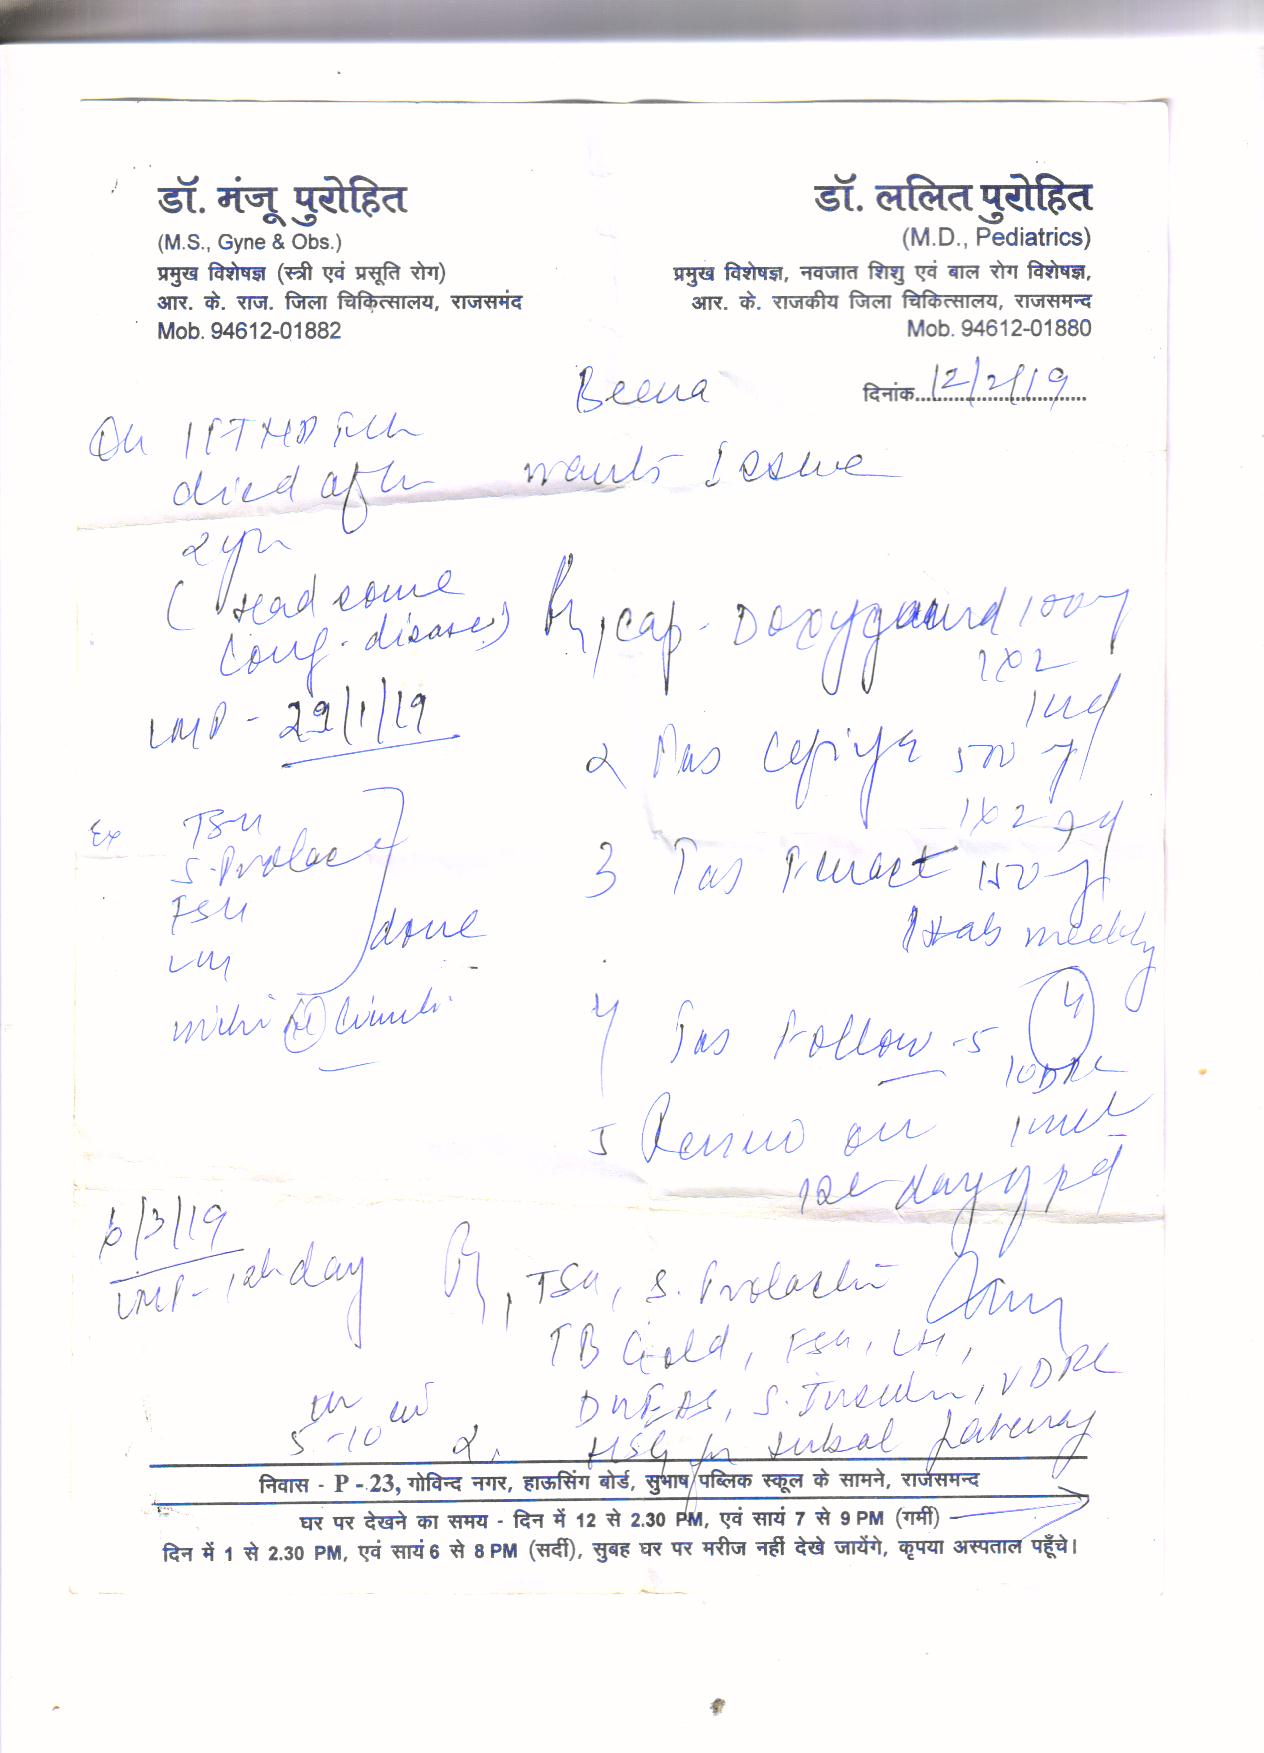 डॉ. मंजू पुरोहित
(M.S., Gyne & Obs.)
प्रमुख विशेषज्ञ (स्त्री एवं प्रसूति रोग)
आर. के. राज. जिला चिकित्सालय, राजसमंद
Mob. 94612-01882
डॉ. ललित पुरोहित
(M.D., Pediatrics)
प्रमुख विशेषज्ञ, नवजात शिशु एवं बाल रोग विशेषज्ञ,
आर. के. राजकीय जिला चिकित्सालय, राजसमन्द
Mob. 94612-01880
दिनांक 12/2/19
Beena
died after
wants Issue
2yr
(Had some
Cong. disease)
LMP - 29/1/19
TSH
S. Prolac
FSH
LH
done
Rx, Cap - Doxygaurd 100
1x2
2 500
1x2
3 Tab 150
1tab weekly
4 Tab Follow-5
5 Review on
12th day of pd
6/3/19
LMP - 12th day
Rx, TSH, S. Prolactin
TB Gold, FSH, LH,
DHEAS, S. Insulin, VDRL
5-10
2. HSG for tubal patency
निवास - P - 23, गोविन्द नगर, हाऊसिंग बोर्ड, सुभाष पब्लिक स्कूल के सामने, राजसमन्द
घर पर देखने का समय - दिन में 12 से 2.30 PM, एवं सायं 7 से 9 PM (गर्मी)
दिन में 1 से 2.30 PM, एवं सायं 6 से 8 PM (सर्दी), सुबह घर पर मरीज नहीं देखे जायेंगे, कृपया अस्पताल पहूँचे।